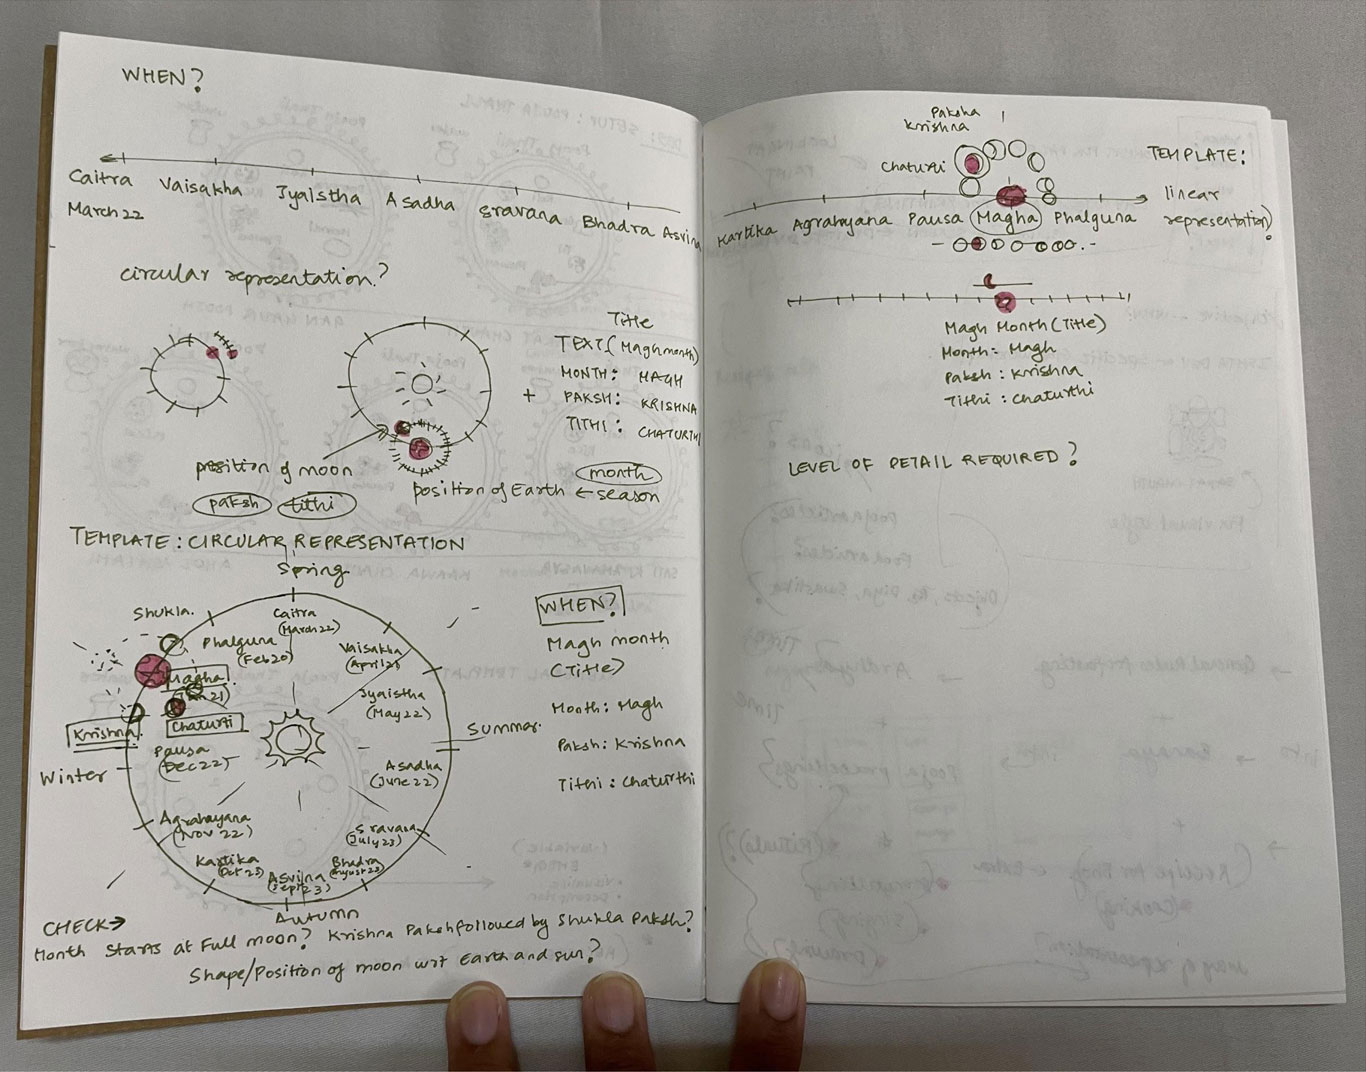 WHEN?
Caitra Vaisakha Jyaistha Asadha Sravana Bhadra Asvina
March 22
circular representation?
Title
TEXT (Magh month)
MONTH: MAGH
+ PAKSH: KRISHNA
TITHI: CHATURTHI
position of moon
paksh tithi
month
position of Earth ← season
TEMPLATE: CIRCULAR REPRESENTATION
Spring
Shukla.
Caitra
(March 22)
Phalguna
(Feb 20)
Vaisakha
(April 21)
Magha
(Jan 21)
Jyaistha
(May 22)
Krishna
Chaturti
Summar.
Pausa
(Dec 22)
Winter
Asadha
(June 22)
Agrahayana
(Nov 22)
Sravana
(July 23)
Kartika
(Oct 23)
Bhadra
(August 23)
Asvina
(Sept 23)
Autumn
WHEN?
Magh month
(Title)
Month: Magh
Paksh: Krishna
Tithi: Chaturthi
CHECK→
Month Starts at Full moon? Krishna Paksh followed by Shukla Paksh?
Shape/Position of moon wrt Earth and sun?
Paksha
Krishna
Chaturti
TEMPLATE:
linear
representation?
Kartika Agrahayana Pausa Magha Phalguna
Magh Month (Title)
Month: Magh
Paksh: Krishna
Tithi: Chaturthi
LEVEL OF DETAIL REQUIRED?